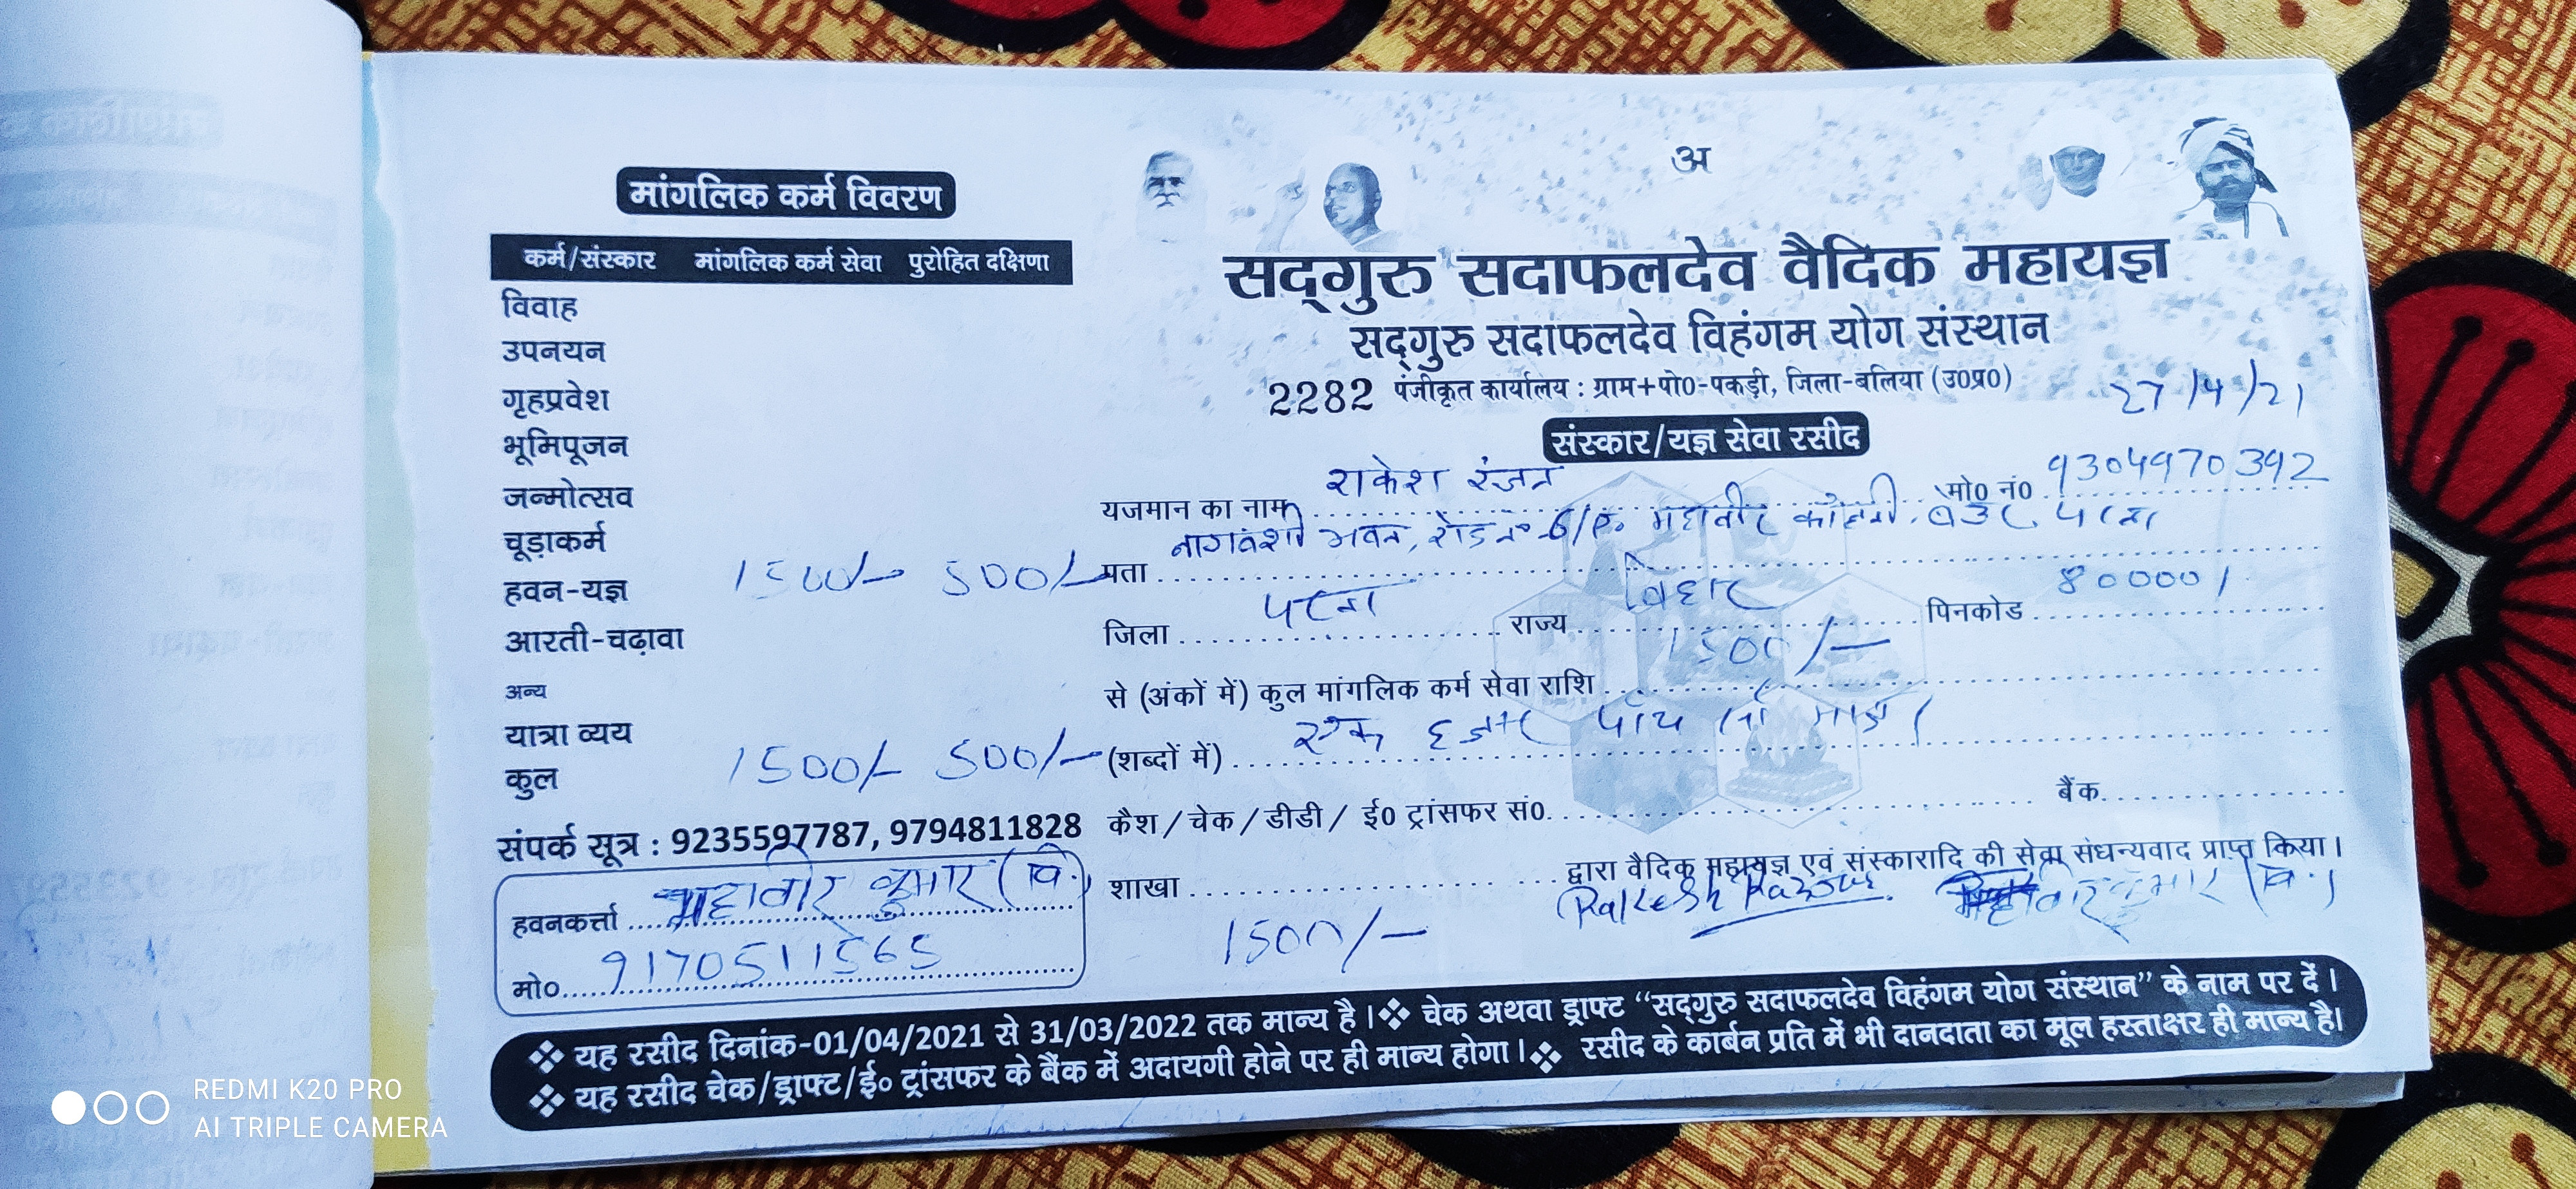 मांगलिक कर्म विवरण
कर्म/संस्कार मांगलिक कर्म सेवा पुरोहित दक्षिणा
विवाह
उपनयन
गृहप्रवेश
भूमिपूजन
जन्मोत्सव
चूड़ाकर्म
हवन-यज्ञ 1500/- 500/-
आरती-चढ़ावा
अन्य
यात्रा व्यय
कुल 1500/- 500/-
संपर्क सूत्र : 9235597787, 9794811828
हवनकर्त्ता महावीर कुमार (वि.)
मो० 9170511565
अ
सद्गुरु सदाफलदेव वैदिक महायज्ञ
सद्गुरु सदाफलदेव विहंगम योग संस्थान
2282 पंजीकृत कार्यालय : ग्राम+पो0-पकड़ी, जिला-बलिया (उ0प्र0)
27/4/21
संस्कार/यज्ञ सेवा रसीद
यजमान का नाम राकेश रंजन मो0 नं0 9304970392
नागवंशी भवन, रोड नं० महावीर कॉलोनी, पटना
पता
जिला पटना राज्य बिहार पिनकोड 800001
से (अंकों में) कुल मांगलिक कर्म सेवा राशि 1500/-
(शब्दों में) एक हजार पाँच सौ मात्र।
कैश/चेक/डीडी/ ई0 ट्रांसफर सं0. बैंक
शाखा द्वारा वैदिक महायज्ञ एवं संस्कारादि की सेवा संधन्यवाद प्राप्त किया।
1500/- Rakesh Ranjan महावीर कुमार (वि.)
❖ यह रसीद दिनांक-01/04/2021 से 31/03/2022 तक मान्य है।❖ चेक अथवा ड्राफ्ट “सद्गुरु सदाफलदेव विहंगम योग संस्थान” के नाम पर दें।
❖ यह रसीद चेक/ड्राफ्ट/ई० ट्रांसफर के बैंक में अदायगी होने पर ही मान्य होगा।❖ रसीद के कार्बन प्रति में भी दानदाता का मूल हस्ताक्षर ही मान्य है।
REDMI K20 PRO
AI TRIPLE CAMERA